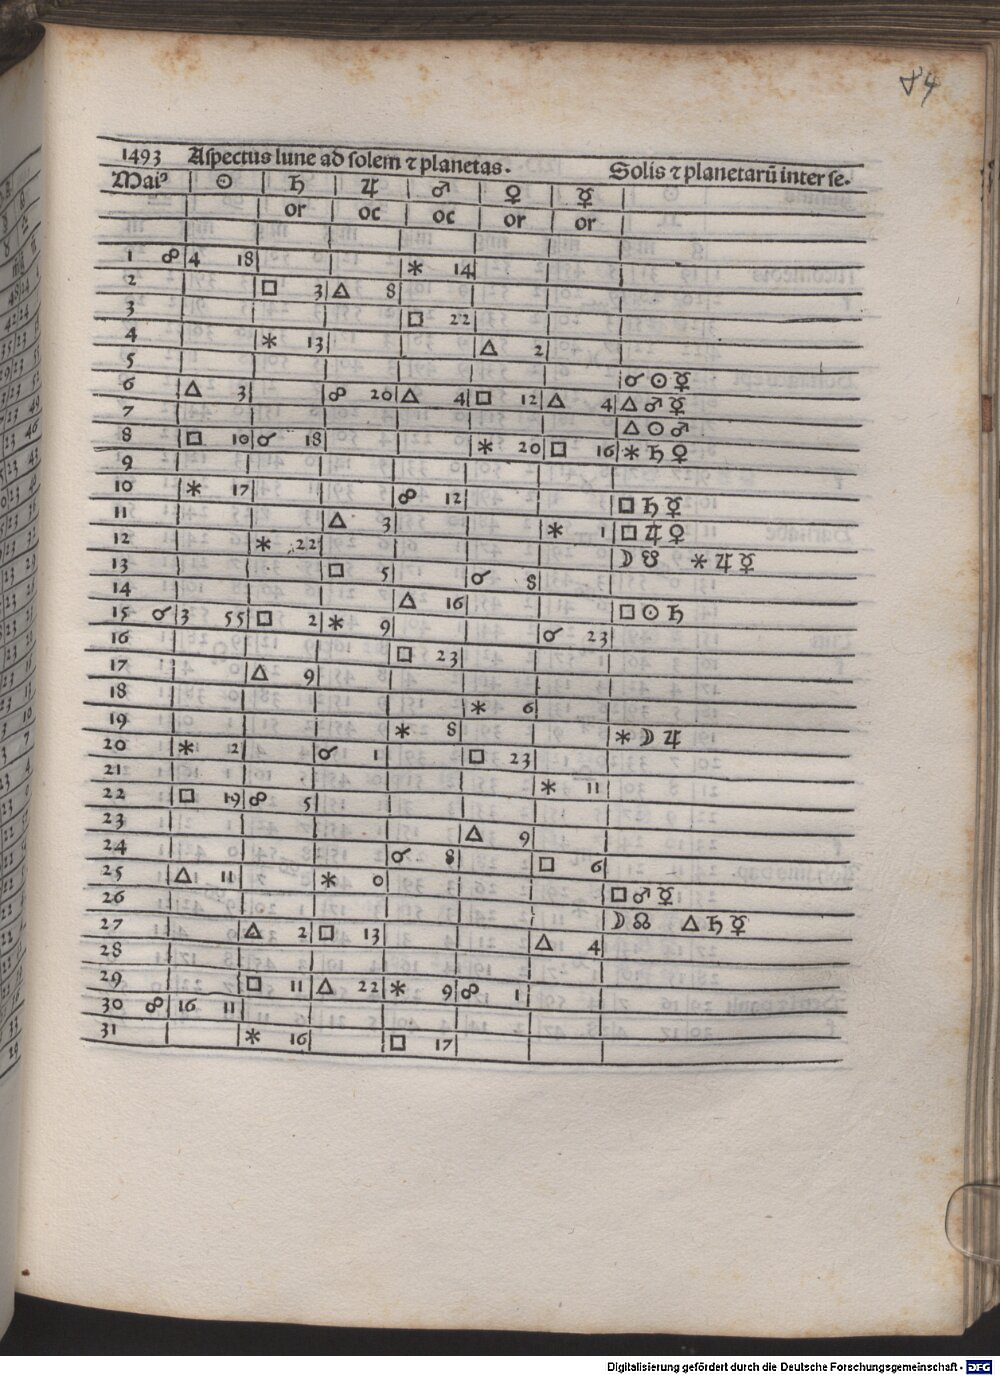 84
1493 Aſpectus lune ad ſolem ⁊ planetas. Solis ⁊ planetarū inter ſe.
Maiꝰ ☉ ♄ ♃ ♂ ♀ ☿
or oc oc or or
1 ☍ 4 18 ⚹ 14
2 □ 3 △ 8
3 □ 22
4 ⚹ 13 △ 2
5 ☌ ☉ ☿
6 △ 3 ☍ 20 △ 4 □ 12 △ 4 △ ♂ ☿
7 △ ☉ ♂
8 □ 10 ☌ 18 ⚹ 20 □ 16 ⚹ ♄ ♀
9
10 ⚹ 17 ☍ 12 □ ♄ ☿
11 △ 3 ⚹ 1 □ ♃ ♀
12 ⚹ 22 ☽ ☊ ⚹ ♃ ☿
13 □ 5 ☌ 8
14 △ 16 □ ☉ ♄
15 ☌ 3 55 □ 2 ⚹ 9 ☌ 23
16 □ 23
17 △ 9
18 ⚹ 6
19 ⚹ 8 ⚹ ☽ ♃
20 ⚹ 2 ☌ 1 □ 23
21 ⚹ 11
22 □ 19 ☍ 5
23 △ 9
24 ☌ 8 □ 6
25 △ 11 ⚹ 0
26 □ ♂ ☿
27 △ 2 □ 13 △ 4 ☽ ☊ △ ♄ ☿
28
29 □ 11 △ 22 ⚹ 9 ☍ 1
30 ☍ 16 11
31 ⚹ 16 □ 17
Digitalisierung gefördert durch die Deutsche Forschungsgemeinschaft - DFG